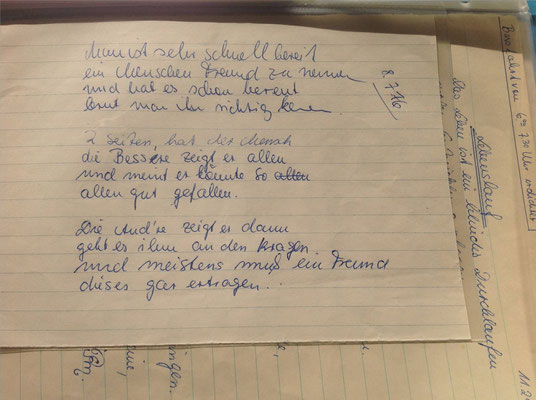 Man ist sehr schnell bereit
ein Menschen Freund zu nennen
und hat es schon bereut
lernt man ihn richtig kenen
8.7.76
2 Seiten, hat der Mensch
die Bessere zeigt er allen
und meint er könnte so allen
allen gut gefallen.
Die And're zeigt er dann
geht es ihm an den Kragen
und meistens muß ein Freund
dieses gar ertragen..
Lebenslauf
Das Leben ist ein Durchlaufen